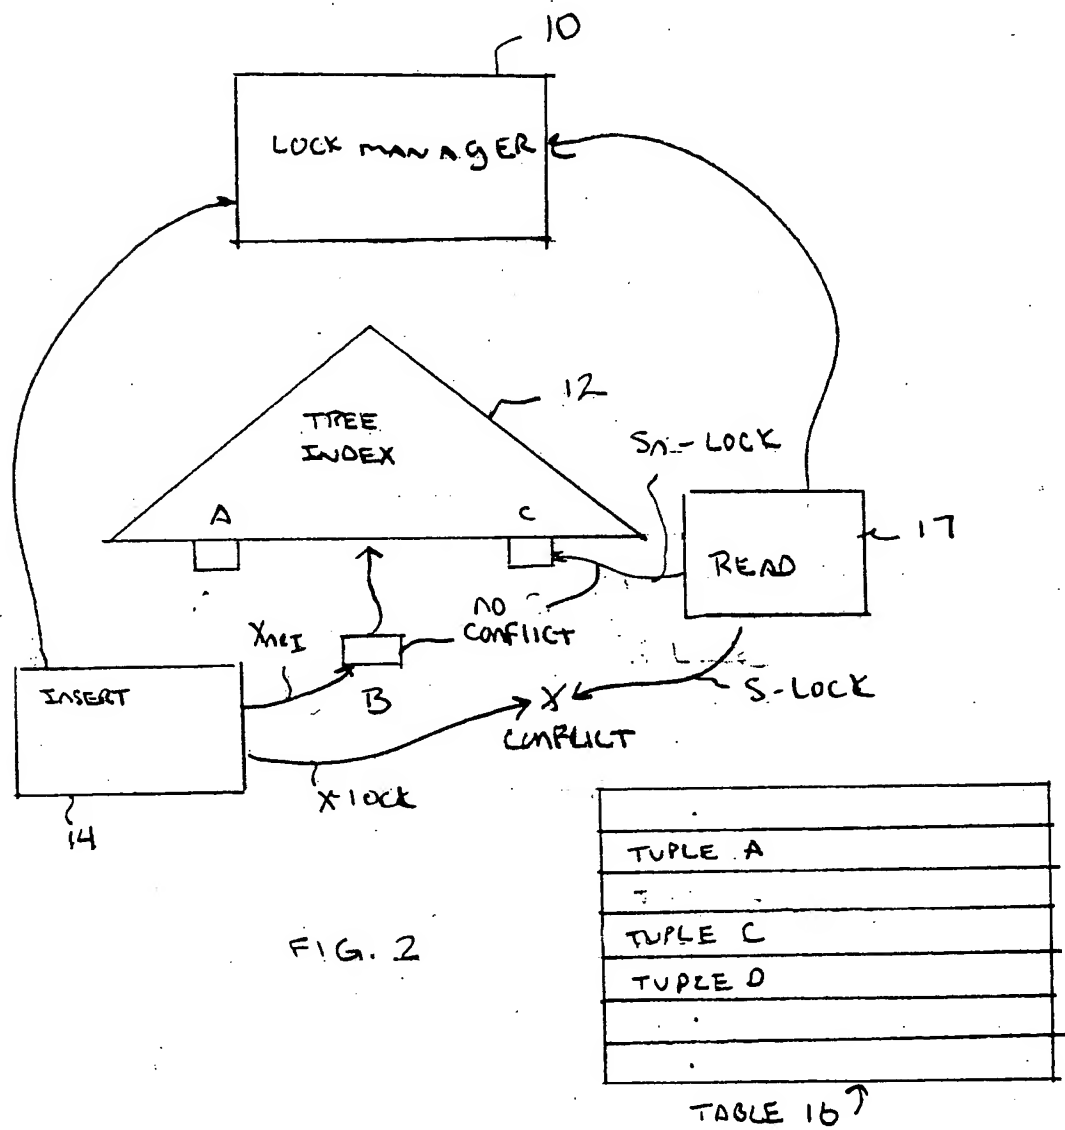 10
LOCK MANAGER
12
TREE
INDEX
Sn-LOCK
A
C
17
READ
NO
CONFLICT
XneI
INSERT
B
S-LOCK
X
CONFLICT
X-lock
14
TUPLE A
TUPLE C
TUPLE D
FIG. 2
TABLE 16